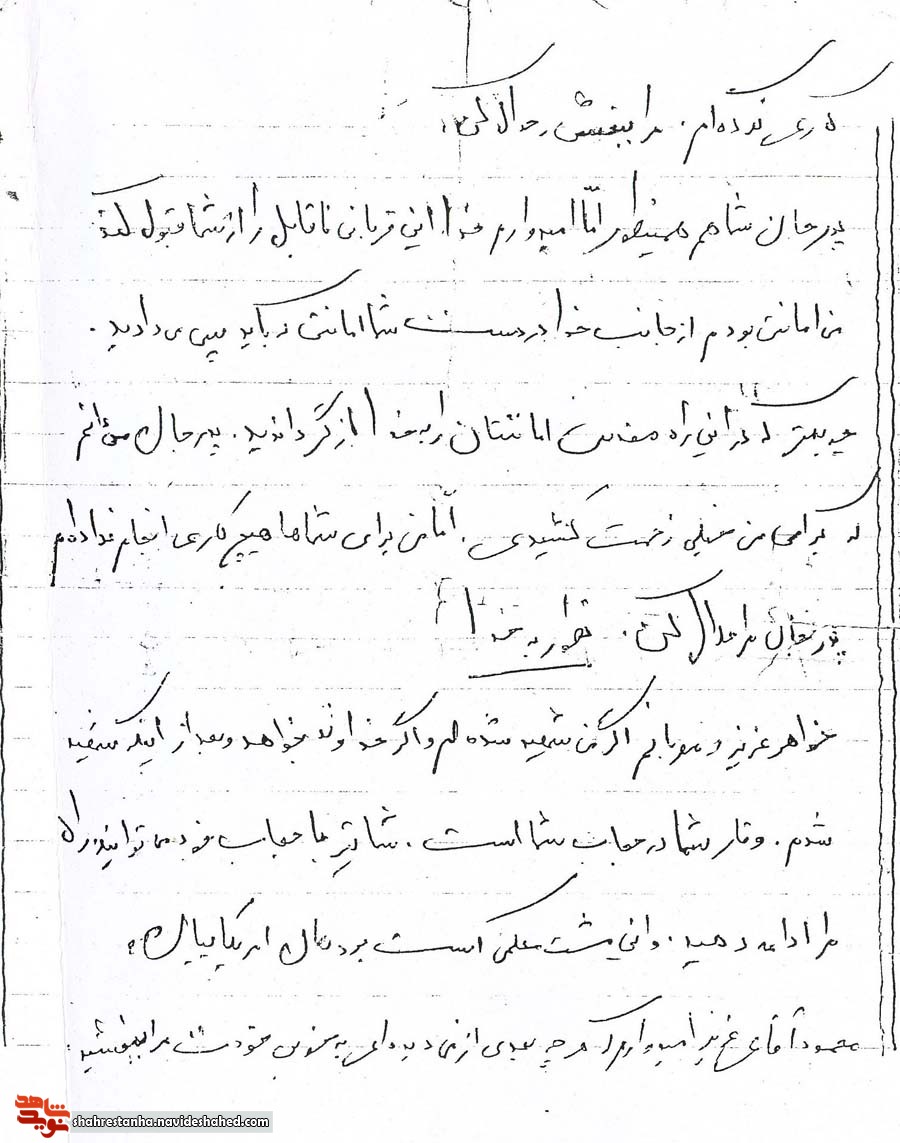 کاری نکرده‌ام. مرا ببخش و حلال کن.
پدر جان شما هم همینطور امّا امیدوارم خدا این قربانی ناقابل را از شما قبول کند
من امانتی بودم از جانب خدا در دست شما امانتی که باید پس می‌دادید.
چه بهتر که در این راه مقدس امانتتان را به خدا بازگردانید. پدر جان می‌دانم
که برای من خیلی زحمت کشیدی. امّا من برای شماها هیچ کاری انجام نداده‌ام
پدر جان مرا حلال کن. به خدا
خواهر عزیز و مهربانم اگر من شهید شده‌ام و اگر خداوند بخواهد و بعد از اینکه شهید
شدم. وقار شما در حجاب شما است. شما نیز با حجاب خود می‌توانید راه
مرا ادامه دهید. و این مشت محکمی است بر دهان امریکاییان.
محمود آقای عزیز امیدوارم که هر چه بدی از من دیده‌ای به خوبی خودت مرا ببخشید
نوید شاهد
shahrestanha.navideshahed.com